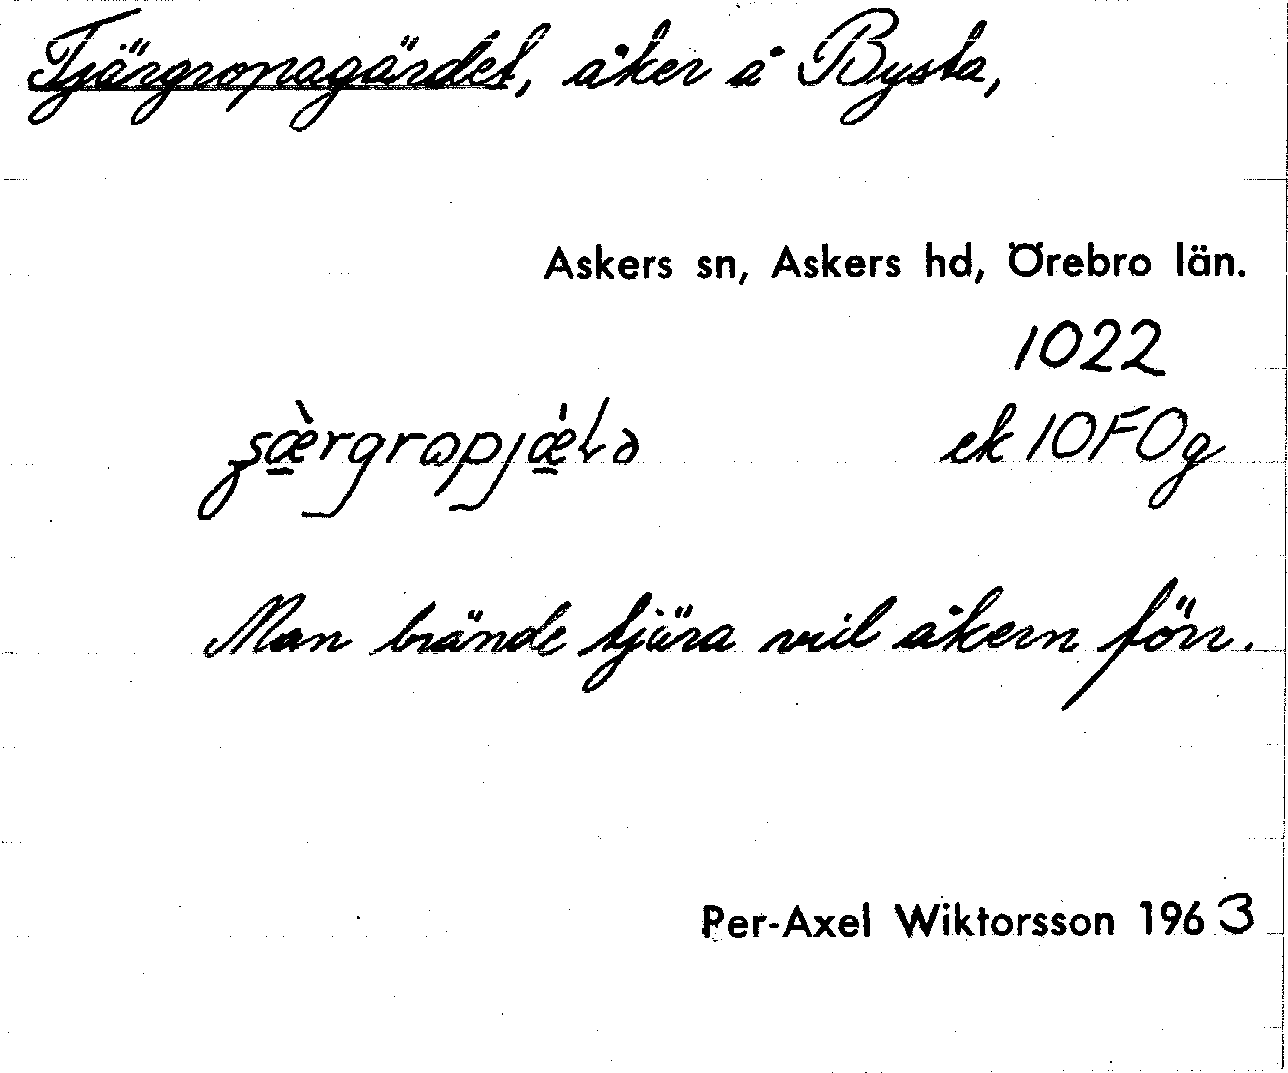 Tjärgropagärdet, åker å Bysta,
Askers sn, Askers hd, Örebro län.
1022
ek 10F0g
Man brände tjära vid åkern förr.
Per-Axel Wiktorsson 1963